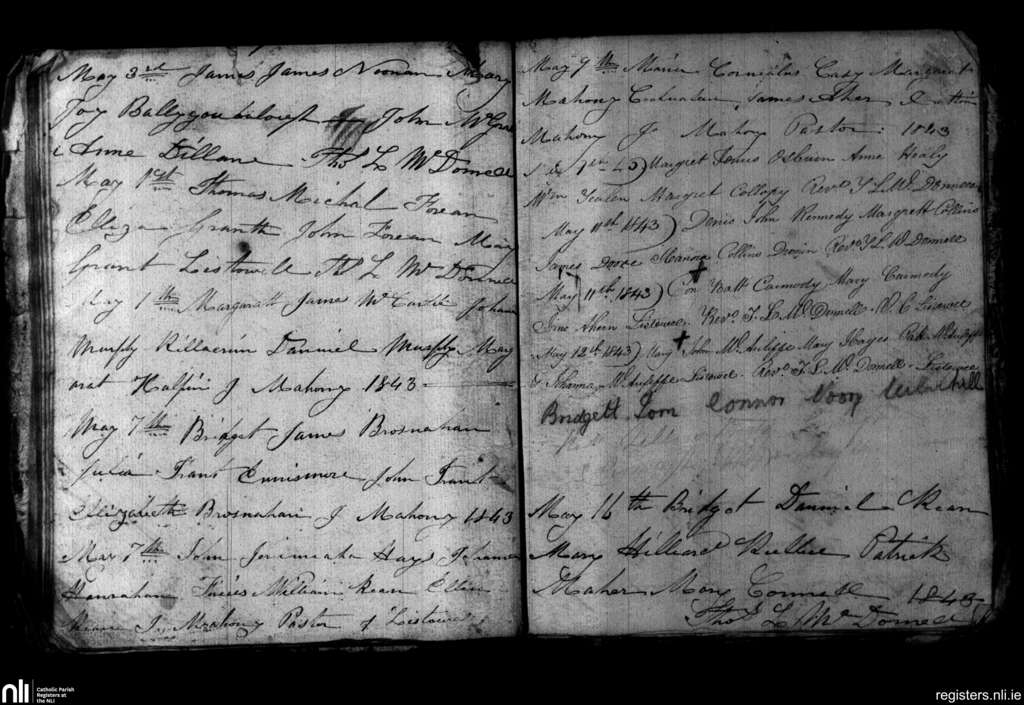 May 3rd James James Noonan Mary
Foy John McGra
& Anne Dillane Thos L McDonnell
May 1st Thomas Michal Forean
Elliza Granth John Forean Mary
Grant Listowell Ths L McDonnell
May 7th Margarett James McCarthy Johana
Murphy Killacrim Danniel Murphy Mar
Halpin J Mahony 1843
May 7th Bridget James Brosnahan
Julia Trant Ennismore John Trant
Ellizabeth Brosnahan J Mahony 1843
May 7th John Jerimiah Hays Johanna
Hanrahan William Kean Ellen
Kean Jer Mahony Pastor of Listowel
May 9th Maria Cornelius Casy Margaret
Mahony James Aher &
Mahony Jr Mahony Pastor: 1843
Margret James Osbrien Anne Healy
Wm Margret Collopy Revd T L McDonnell
May 11th 1843) Denis John Kennedy Margrett Collins
James Doore Hanora Collins Revd T L McDonnell
May 11th 1843) Con Batt Carmody Mary Carmody
Ahern Listowel. Revd. T. L. McDonnell. R. C Listowel
May 12th 1843) Mary John McAuliffe Mary Hayes Pat McAuliffe
& Johanna McAuliffe Listowel. Revd T. L. McDonnell. Listowel
Bridgett Connor
May 16th Bridget Danniel Kean
Mary Hilliard Patrick
Maher Mary Connell 1843
Thos L McDonnell
nli
Catholic Parish
Registers at
the NLI
registers.nli.ie